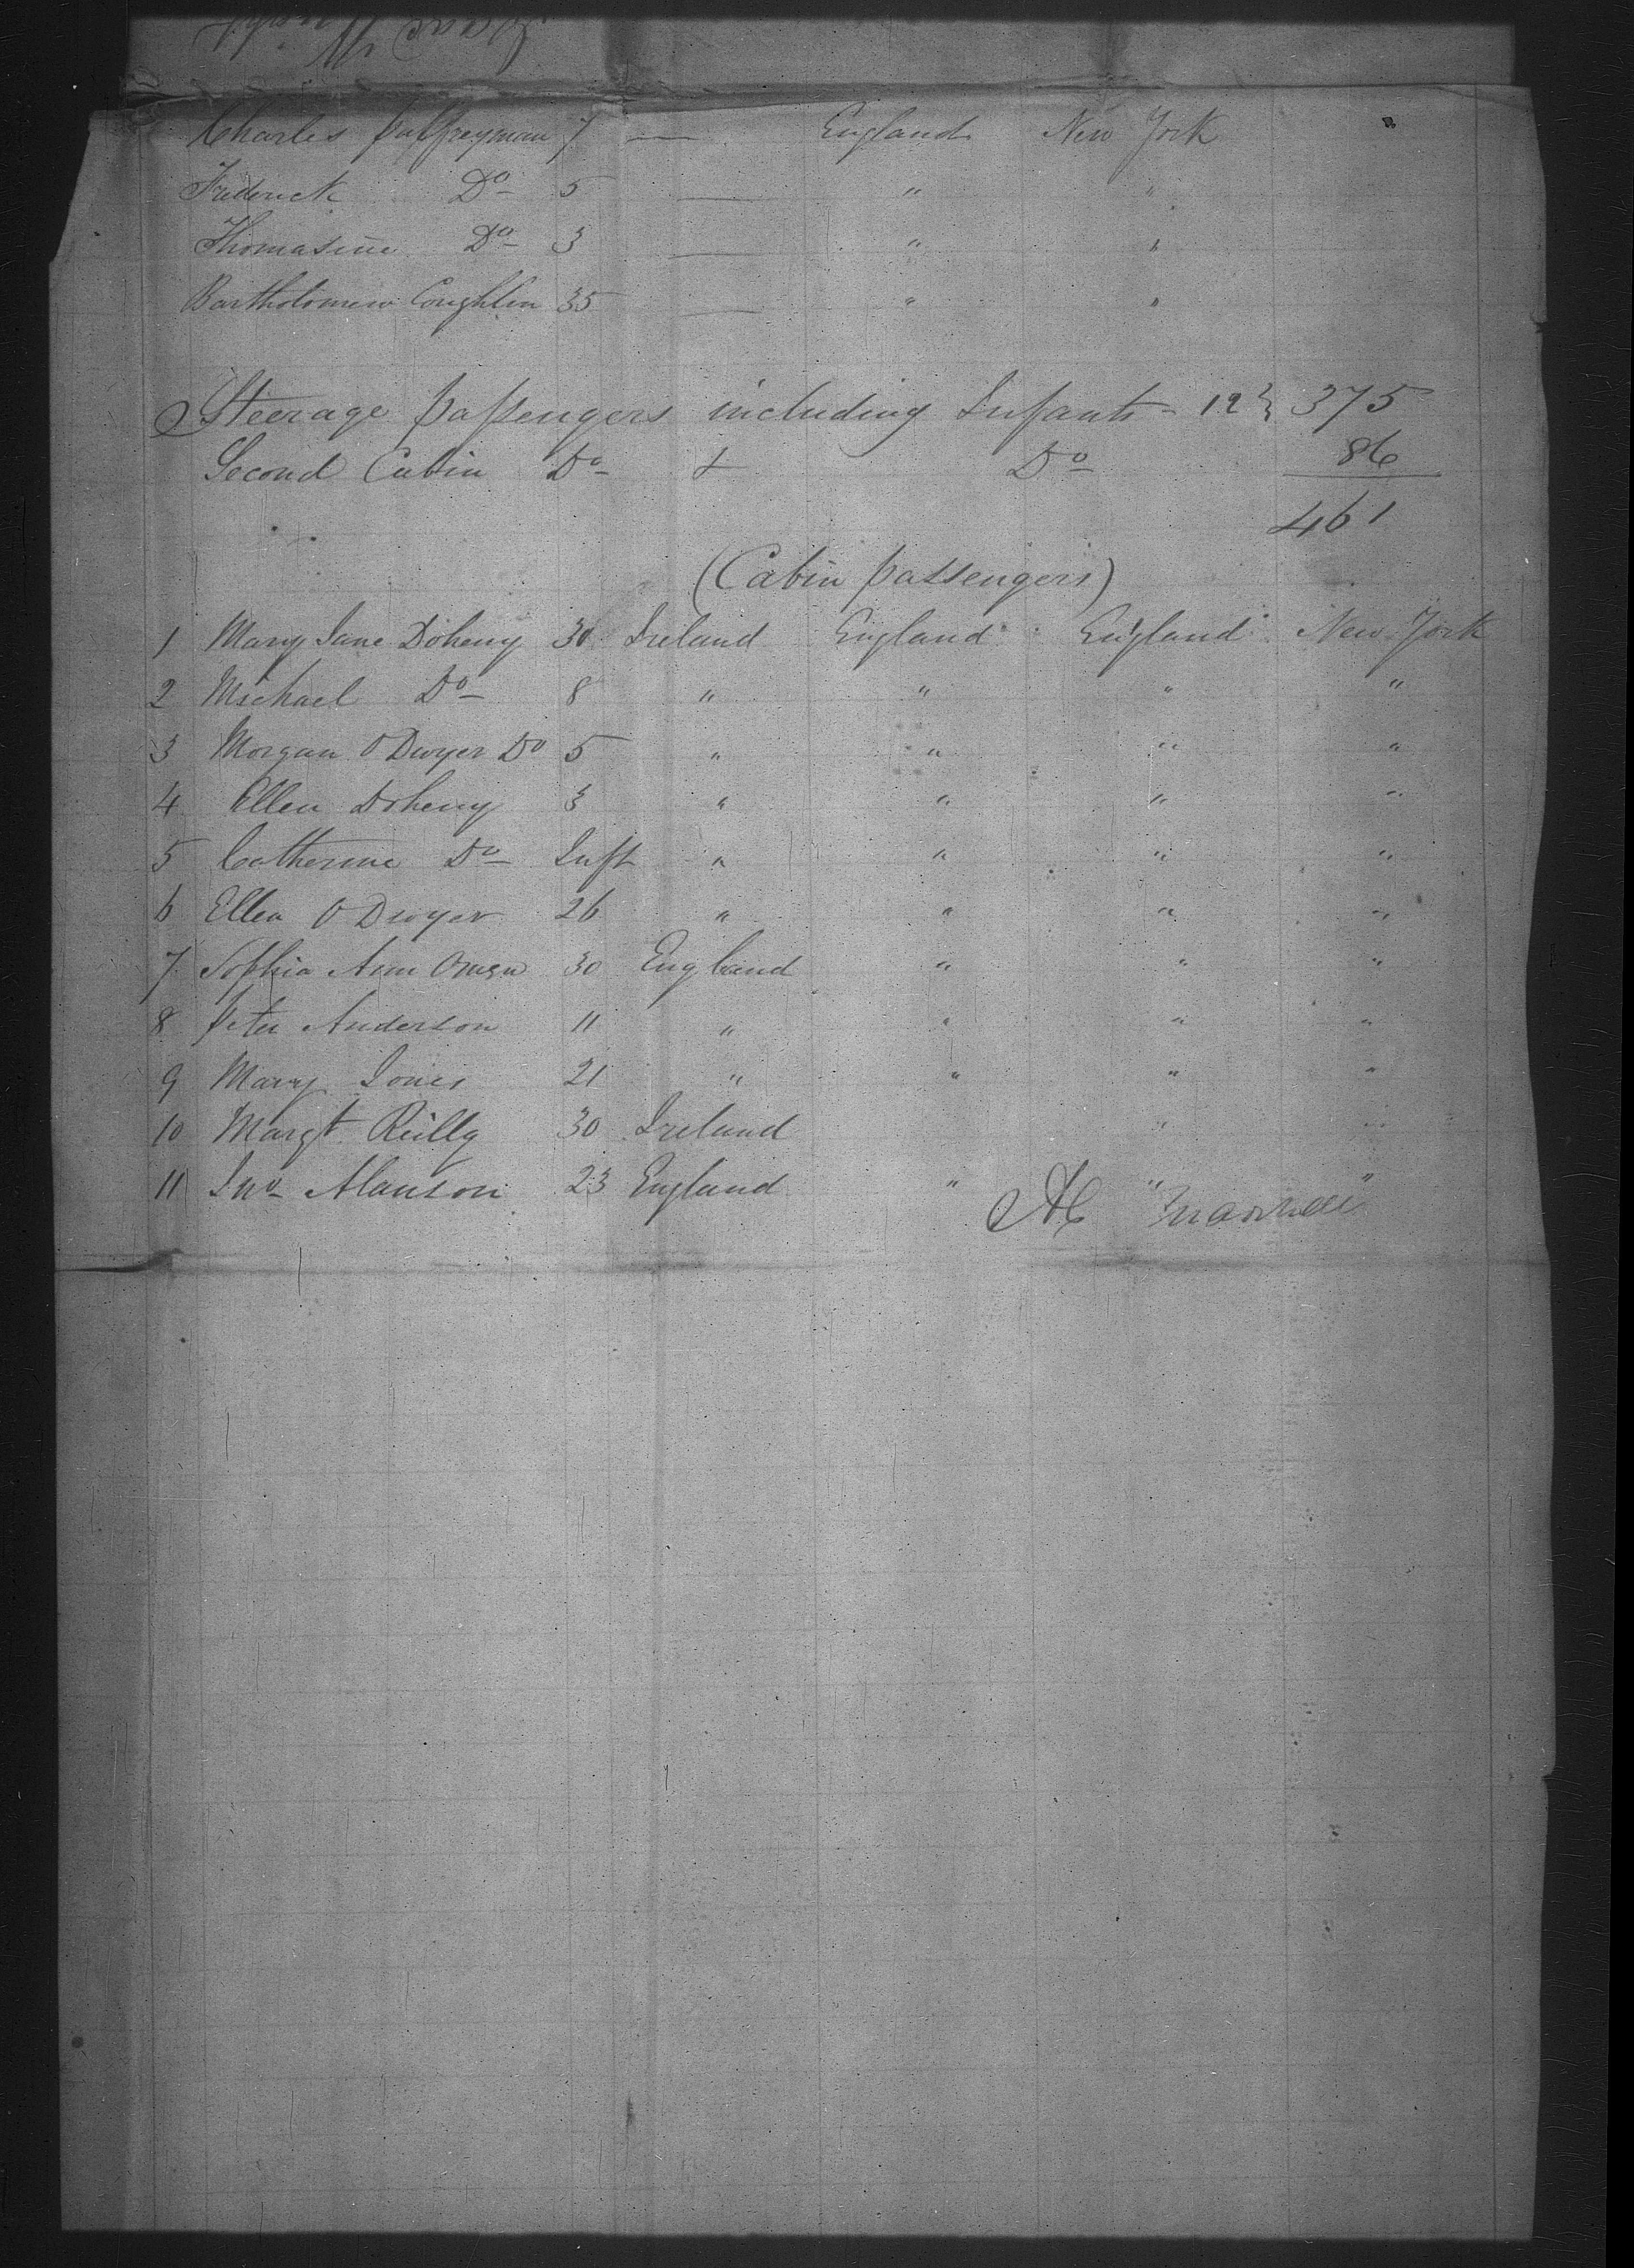 Charles Palfreyman 7 — England New York
Frederick Do 5 — " "
Thomasine Do 3 — " "
Bartholomew Coughlin 35 — " "
Steerage passengers including Infants - 12 } 375
Second Cabin Do & Do 86
461
(Cabin passengers)
1 Mary Jane Doheny 30 Ireland England England New York
2 Michael Do 8 " " " "
3 Morgan O Dwyer Do 5 " " " "
4 Ellen Doheny 3 " " " "
5 Catherine Do Inft " " " "
6 Ellen O Dwyer 26 " " " "
7 Sophia Ann Owen 30 England " " "
8 Peter Anderson 11 " " " "
9 Mary Jones 21 " " " "
10 Margt Reilly 30 Ireland " "
11 Jno Alanson 23 England " " "